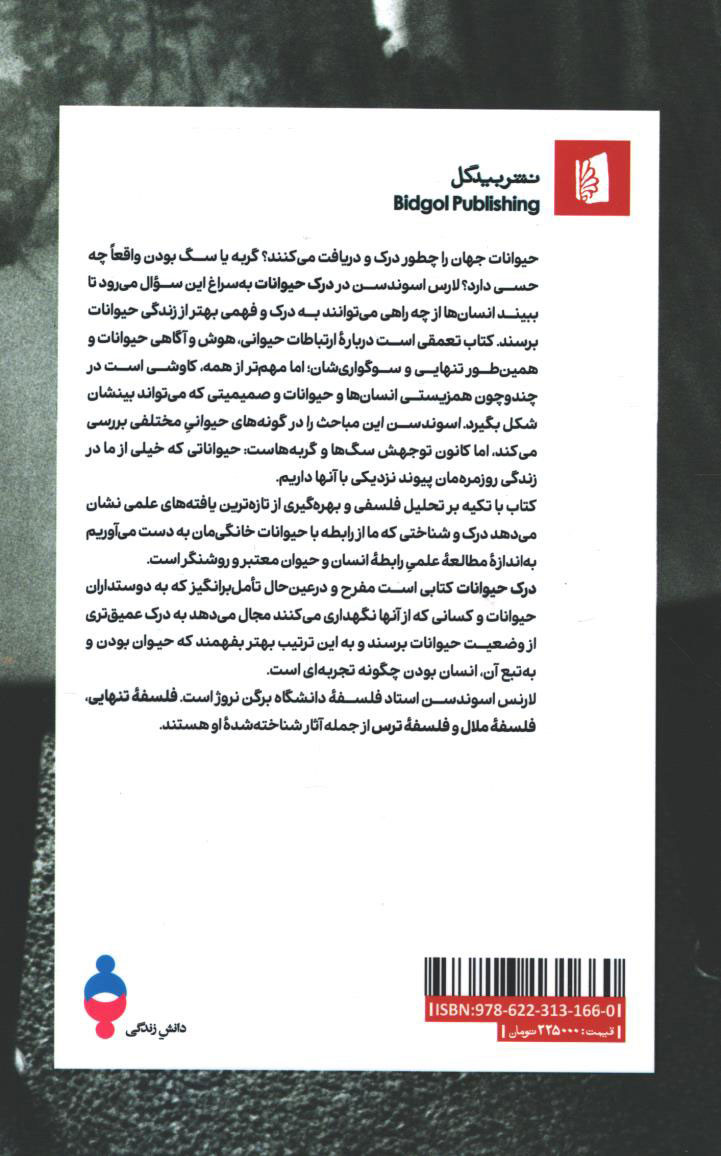 نشر بیدگل
Bidgol Publishing
حیوانات جهان را چطور درک و دریافت می‌کنند؟ گربه یا سگ بودن واقعاً چه
حسی دارد؟ لارس اسوندسن در درک حیوانات به‌سراغ این سؤال می‌رود تا
ببیند انسان‌ها از چه راهی می‌توانند به درک و فهمی بهتر از زندگی حیوانات
برسند. کتاب تعمقی است دربارهٔ ارتباطات حیوانی، هوش و آگاهی حیوانات و
همین‌طور تنهایی و سوگواری‌شان؛ اما مهم‌تر از همه، کاوشی است در
چندوچون همزیستی انسان‌ها و حیوانات و صمیمیتی که می‌تواند بینشان
شکل بگیرد. اسوندسن این مباحث را در گونه‌های حیوانیِ مختلفی بررسی
می‌کند، اما کانون توجهش سگ‌ها و گربه‌هاست: حیواناتی که خیلی از ما در
زندگی روزمره‌مان پیوند نزدیکی با آنها داریم.
کتاب با تکیه بر تحلیل فلسفی و بهره‌گیری از تازه‌ترین یافته‌های علمی نشان
می‌دهد درک و شناختی که ما از رابطه با حیوانات خانگی‌مان به دست می‌آوریم
به‌اندازهٔ مطالعهٔ علمیِ رابطهٔ انسان و حیوان معتبر و روشنگر است.
درک حیوانات کتابی است مفرح و درعین‌حال تأمل‌برانگیز که به دوستداران
حیوانات و کسانی که از آنها نگهداری می‌کنند مجال می‌دهد به درک عمیق‌تری
از وضعیت حیوانات برسند و به این ترتیب بهتر بفهمند که حیوان بودن و
به‌تبع آن، انسان بودن چگونه تجربه‌ای است.
لارنس اسوندسن استاد فلسفهٔ دانشگاه برگن نروژ است. فلسفهٔ تنهایی،
فلسفهٔ ملال و فلسفهٔ ترس از جمله آثار شناخته‌شدهٔ او هستند.
ISBN:978-622-313-166-0
قیمت: ۲۲۵۰۰۰ تومان
دانشِ زندگی